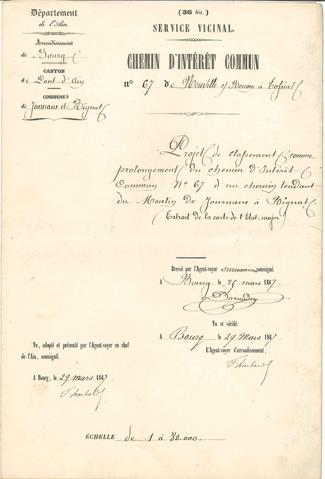 (36 bis.)
SERVICE VICINAL.
Département
de l'Ain.
Arrondissement
de Bourg
CANTON
de Pont d'Ain
COMMUNES
de Journans et Rignat
CHEMIN D'INTÉRÊT COMMUN
N° 67 de Neuville s/ à
Projet de classement comme
prolongement du chemin d'Intérêt
Commun N° 67 d'un chemin tendant
du Moulin de Journans à Rignat
(Extrait de la carte de l'Etat major)
Dressé par l'Agent-voyer soussigné.
A Bourg, le 26 mars 1887
Vu et vérifié.
A Bourg le 29 Mars 1887
L'Agent-voyer d'arrondissement,
Vu, adopté et présenté par l'Agent-voyer en chef
de l'Ain, soussigné.
A Bourg, le 29 mars 1887
ÉCHELLE de 1 à 80.000.